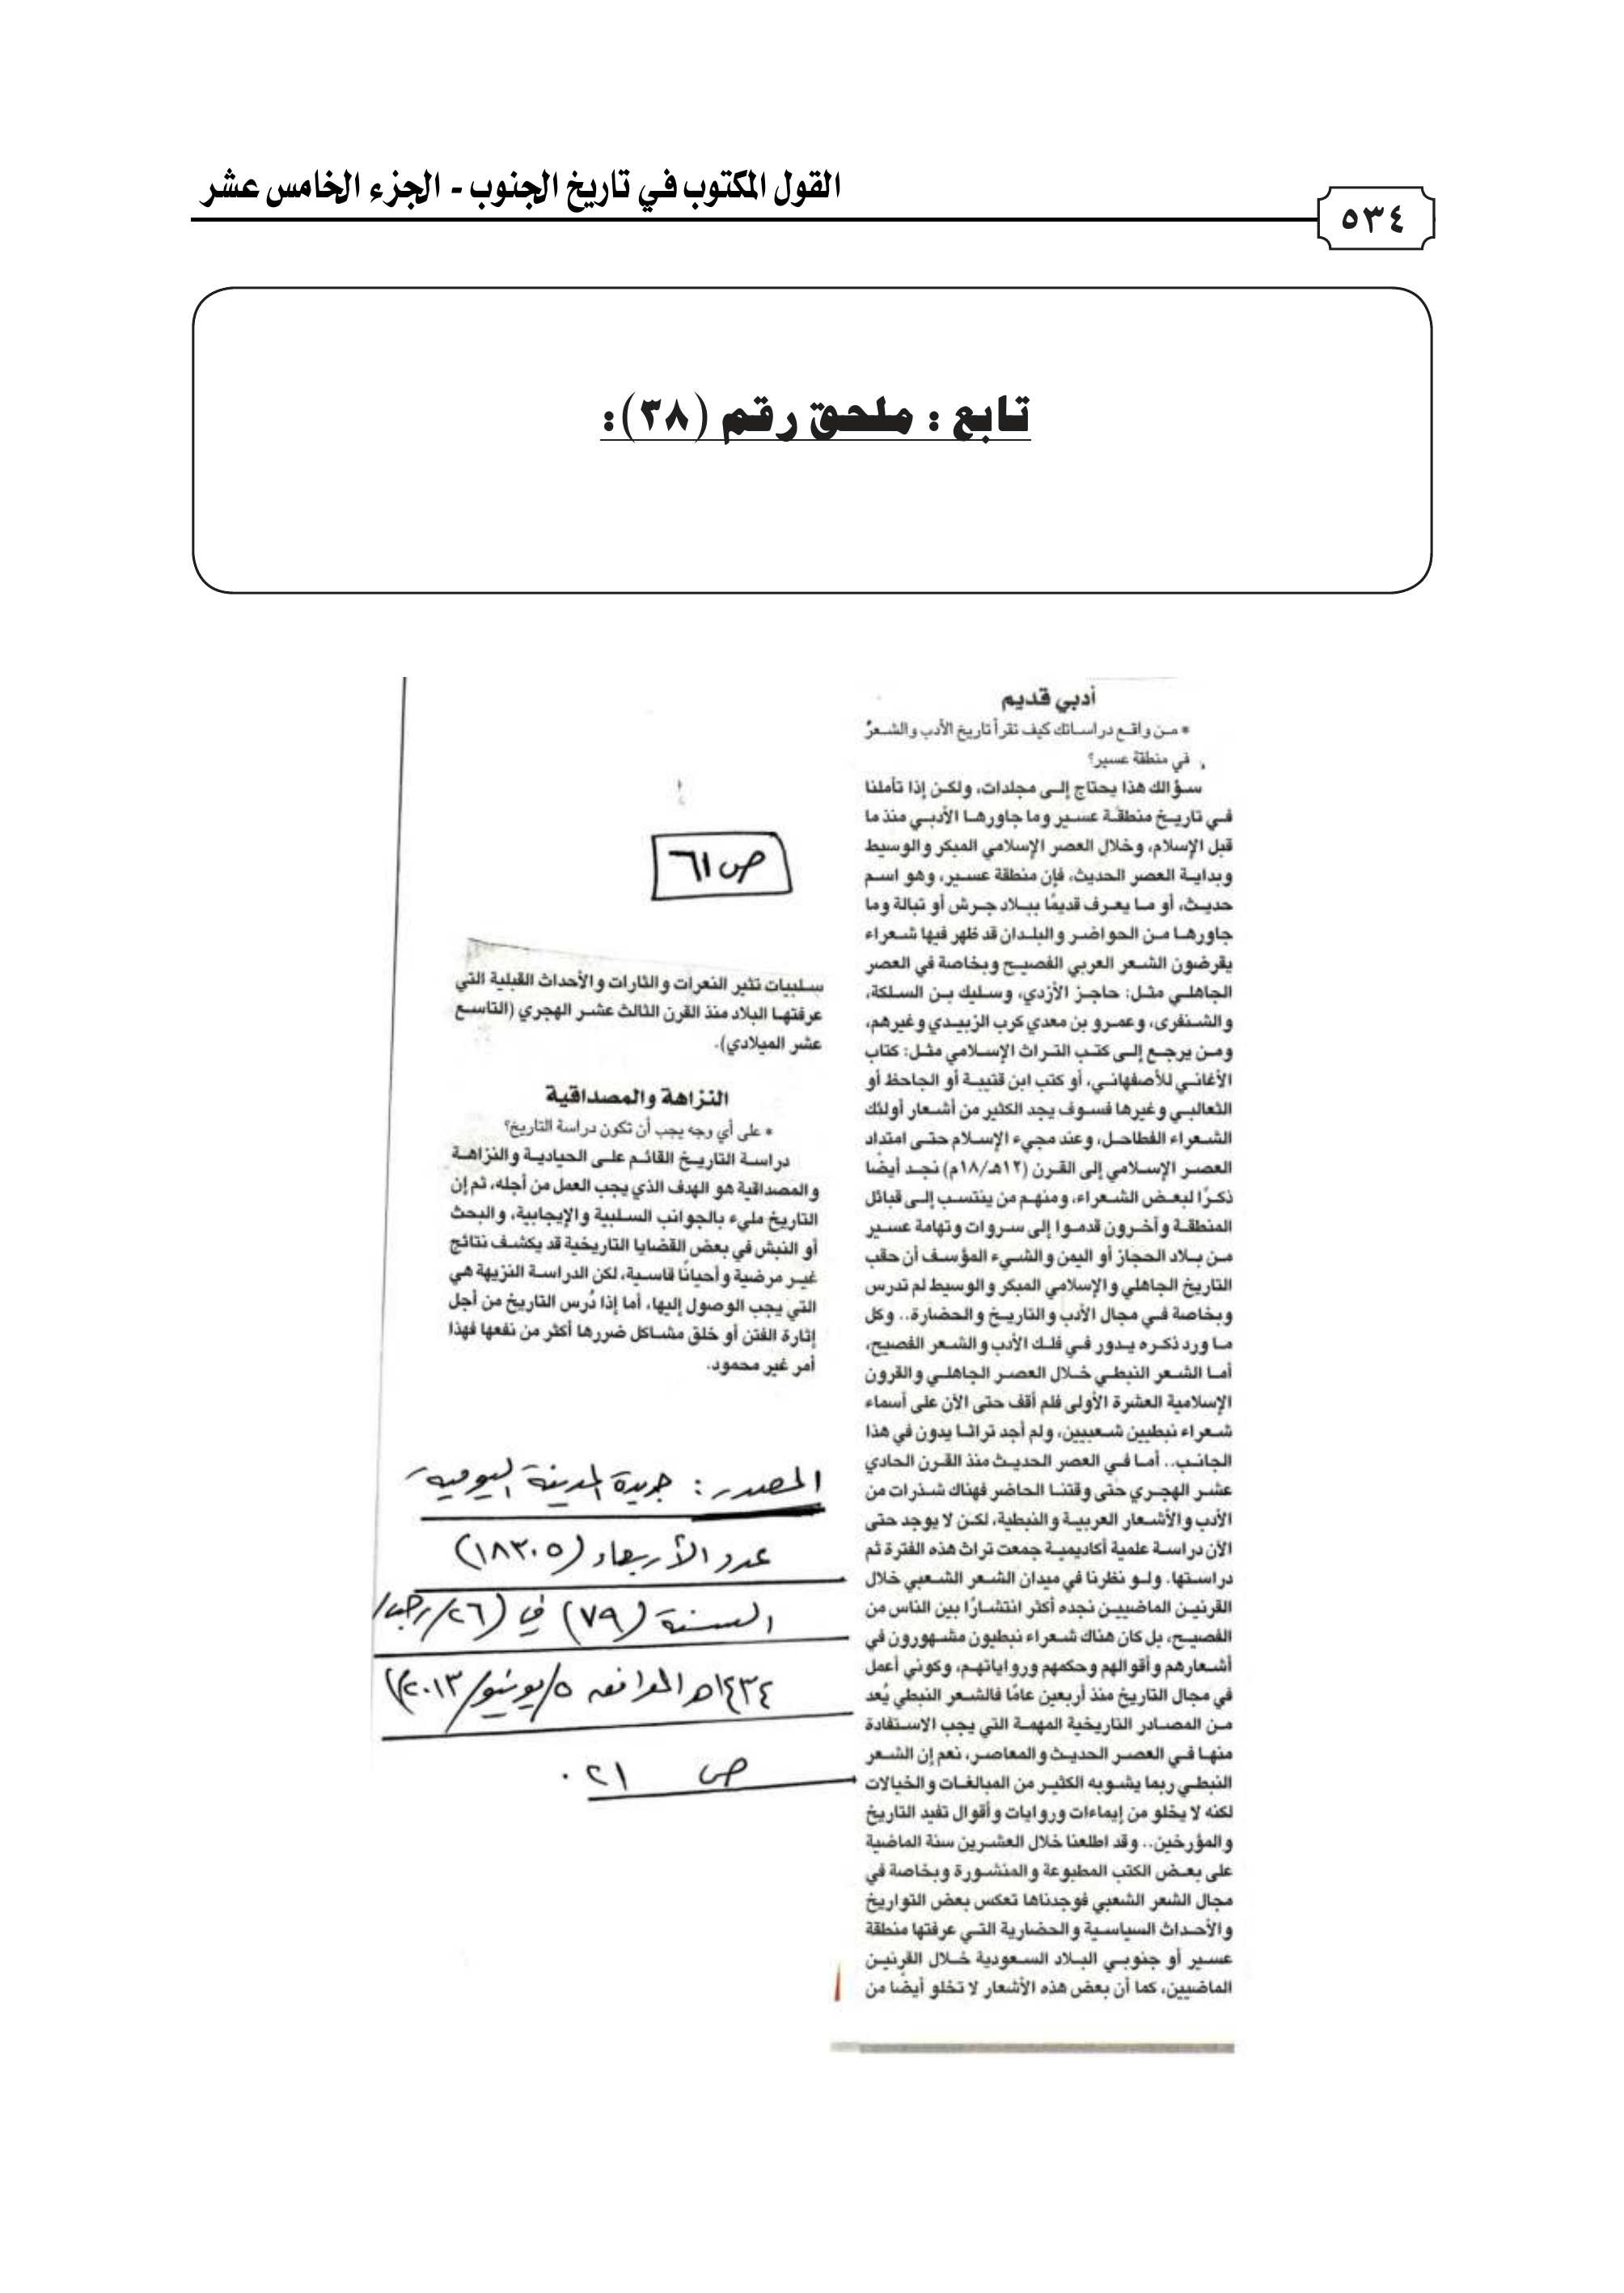 القول المكتوب في تاريخ الجنوب - الجزء الخامس عشر
٥٣٤
تابع : ملحق رقم (٣٨):
أدبي قديم
* مـن واقـع دراسـاتك كيف تقرأ تاريخ الأدب والشـعر
في منطقة عسير؟
سـؤالك هذا يحتاج إلـى مجلدات، ولكـن إذا تأملنا
فـي تاريـخ منطقـة عسـير وما جاورهـا الأدبـي منذ ما
قبل الإسلام، وخلال العصر الإسلامي المبكر والوسيط
وبدايـة العصر الحديث، فإن منطقة عسـير، وهو اسـم
حديـث، أو مـا يعـرف قديمًا ببـلاد جـرش أو تبالة وما
جاورهـا مـن الحواضـر والبلـدان قد ظهر فيها شـعراء
يقرضون الشعر العربي الفصيـح وبخاصة في العصر
الجاهلـي مثـل: حاجـز الأزدي، وسـليك بـن السلكة،
والشـنفرى، وعمـرو بن معدي كرب الزبيـدي وغيرهم،
ومـن يرجـع إلـى كتـب التـراث الإسـلامي مثـل: كتاب
الأغانـي للأصفهانـي، أو كتب ابن قتيبـة أو الجاحظ أو
الثعالبـي وغيرها فسـوف يجد الكثير من أشـعار أولئك
الشـعراء الفطاحـل، وعند مجيء الإسـلام حتـى امتداد
العصـر الإسـلامي إلى القـرن (١٢هـ/١٨م) نجـد أيضًا
ذكـرًا لبعـض الشـعراء، ومنهـم من ينتسـب إلـى قبائل
المنطقـة وآخـرون قدمـوا إلى سـروات وتهامة عسـير
مـن بـلاد الحجاز أو اليمن والشـيء المؤسـف أن حقب
التاريخ الجاهلي والإسلامي المبكر والوسيط لم تدرس
وبخاصة فـي مجال الأدب والتاريـخ والحضارة.. وكل
مـا ورد ذكـره يـدور فـي فلـك الأدب والشـعر الفصيح،
أمـا الشـعر النبطـي خـلال العصـر الجاهلـي والقرون
الإسلامية العشرة الأولى فلم أقف حتى الآن على أسماء
شـعراء نبطيين شـعبيين، ولم أجد تراثـا يدون في هذا
الجانـب.. أمـا فـي العصر الحديـث منذ القـرن الحادي
عشـر الهجـري حتى وقتنـا الحاضر فهناك شـذرات من
الأدب والأشـعار العربيـة والنبطية، لكـن لا يوجد حتى
الآن دراسـة علمية أكاديميـة جمعت تراث هذه الفترة ثم
دراسـتها. ولـو نظرنا في ميدان الشـعر الشعبي خلال
القرنيـن الماضييـن نجده أكثر انتشـارًا بين الناس من
الفصيـح، بل كان هناك شـعراء نبطيون مشـهورون في
أشـعارهم وأقوالهم وحكمهم ورواياتهـم، وكوني أعمل
في مجال التاريخ منذ أربعين عامًا فالشـعر النبطي يُعد
مـن المصـادر التاريخية المهمـة التي يجب الاسـتفادة
منهـا فـي العصـر الحديـث والمعاصـر، نعم إن الشـعر
النبطـي ربما يشـوبه الكثيـر من المبالغـات والخيالات
لكنه لا يخلو من إيماءات وروايات وأقوال تفيد التاريخ
والمؤرخين.. وقد اطلعنا خلال العشـرين سنة الماضية
على بعـض الكتب المطبوعة والمنشـورة وبخاصة في
مجال الشعر الشعبي فوجدناها تعكس بعض التواريخ
والأحـداث السياسـية والحضارية التـي عرفتها منطقة
عسـير أو جنوبـي البـلاد السـعودية خـلال القرنيـن
الماضيين، كما أن بعض هذه الأشعار لا تخلو أيضًا من
ص ٦١
سـلبيات تثير النعرات والثارات والأحداث القبلية التي
عرفتهـا البلاد منذ القرن الثالث عشـر الهجري (التاسـع
عشر الميلادي).
النزاهة والمصداقية
* على أي وجه يجب أن تكون دراسة التاريخ؟
دراسـة التاريـخ القائـم علـى الحياديـة والنزاهـة
والمصداقية هو الهدف الذي يجب العمل من أجله، ثم إن
التاريخ مليء بالجوانب السـلبية والإيجابية، والبحث
أو النبش في بعض القضايا التاريخية قد يكشـف نتائج
غيـر مرضية وأحيانًا قاسـية، لكن الدراسـة النزيهة هي
التي يجب الوصول إليها، أما إذا دُرس التاريخ من أجل
إثارة الفتن أو خلق مشـاكل ضررها أكثر من نفعها فهذا
أمر غير محمود.
المصدر : جريدة المدينة اليومية
عدد الأربعاء (١٨٣٠٥)
السنة (٧٩) في (٢٦/رجب/
١٤٣٤هـ الموافق ٥/يونيو/٢٠١٣م)
ص ٢١ .